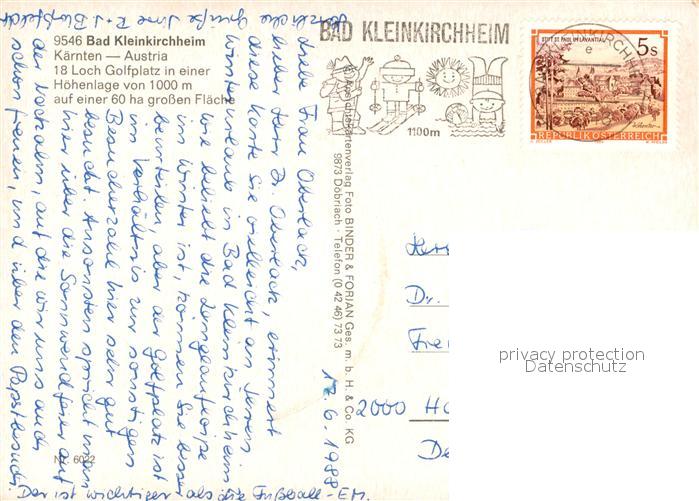 9546 Bad Kleinkirchheim
Kärnten — Austria
18 Loch Golfplatz in einer
Höhenlage von 1000 m
auf einer 60 ha großen Fläche
BAD KLEINKIRCHHEIM
1100m
STIFT ST. PAUL IM LAVANTTAL
5s
REPUBLIK ÖSTERREICH
Ansichtskartenverlag Foto BINDER & FORIAN Ges. m. b. H. & Co. KG
9873 Döbriach · Telefon (0 42 46) 73 73
17.6.1988
Liebe Frau Oberlack,
lieber Herr Dr. Oberlack, erinnert
diese Karte Sie vielleicht an Ihren
Winterurlaub in Bad Kleinkirchheim
wie beliebt die Langlaufloipe
im Winter ist, können Sie besser
beurteilen, aber der Golfplatz ist
im Verhältnis zur sonstigen
Besucherzahl hier sehr gut
besucht. Ansonsten spricht man
hier über die Sonnwendfeier auf
der Nockalm, auf die wir uns auch
schon freuen, und über den Papstbesuch.
Der ist wichtiger als die Fußball-EM.
Herzliche Grüße Ihre R. + J.
Dr.
2000
privacy protection
Datenschutz
Nr. 6022